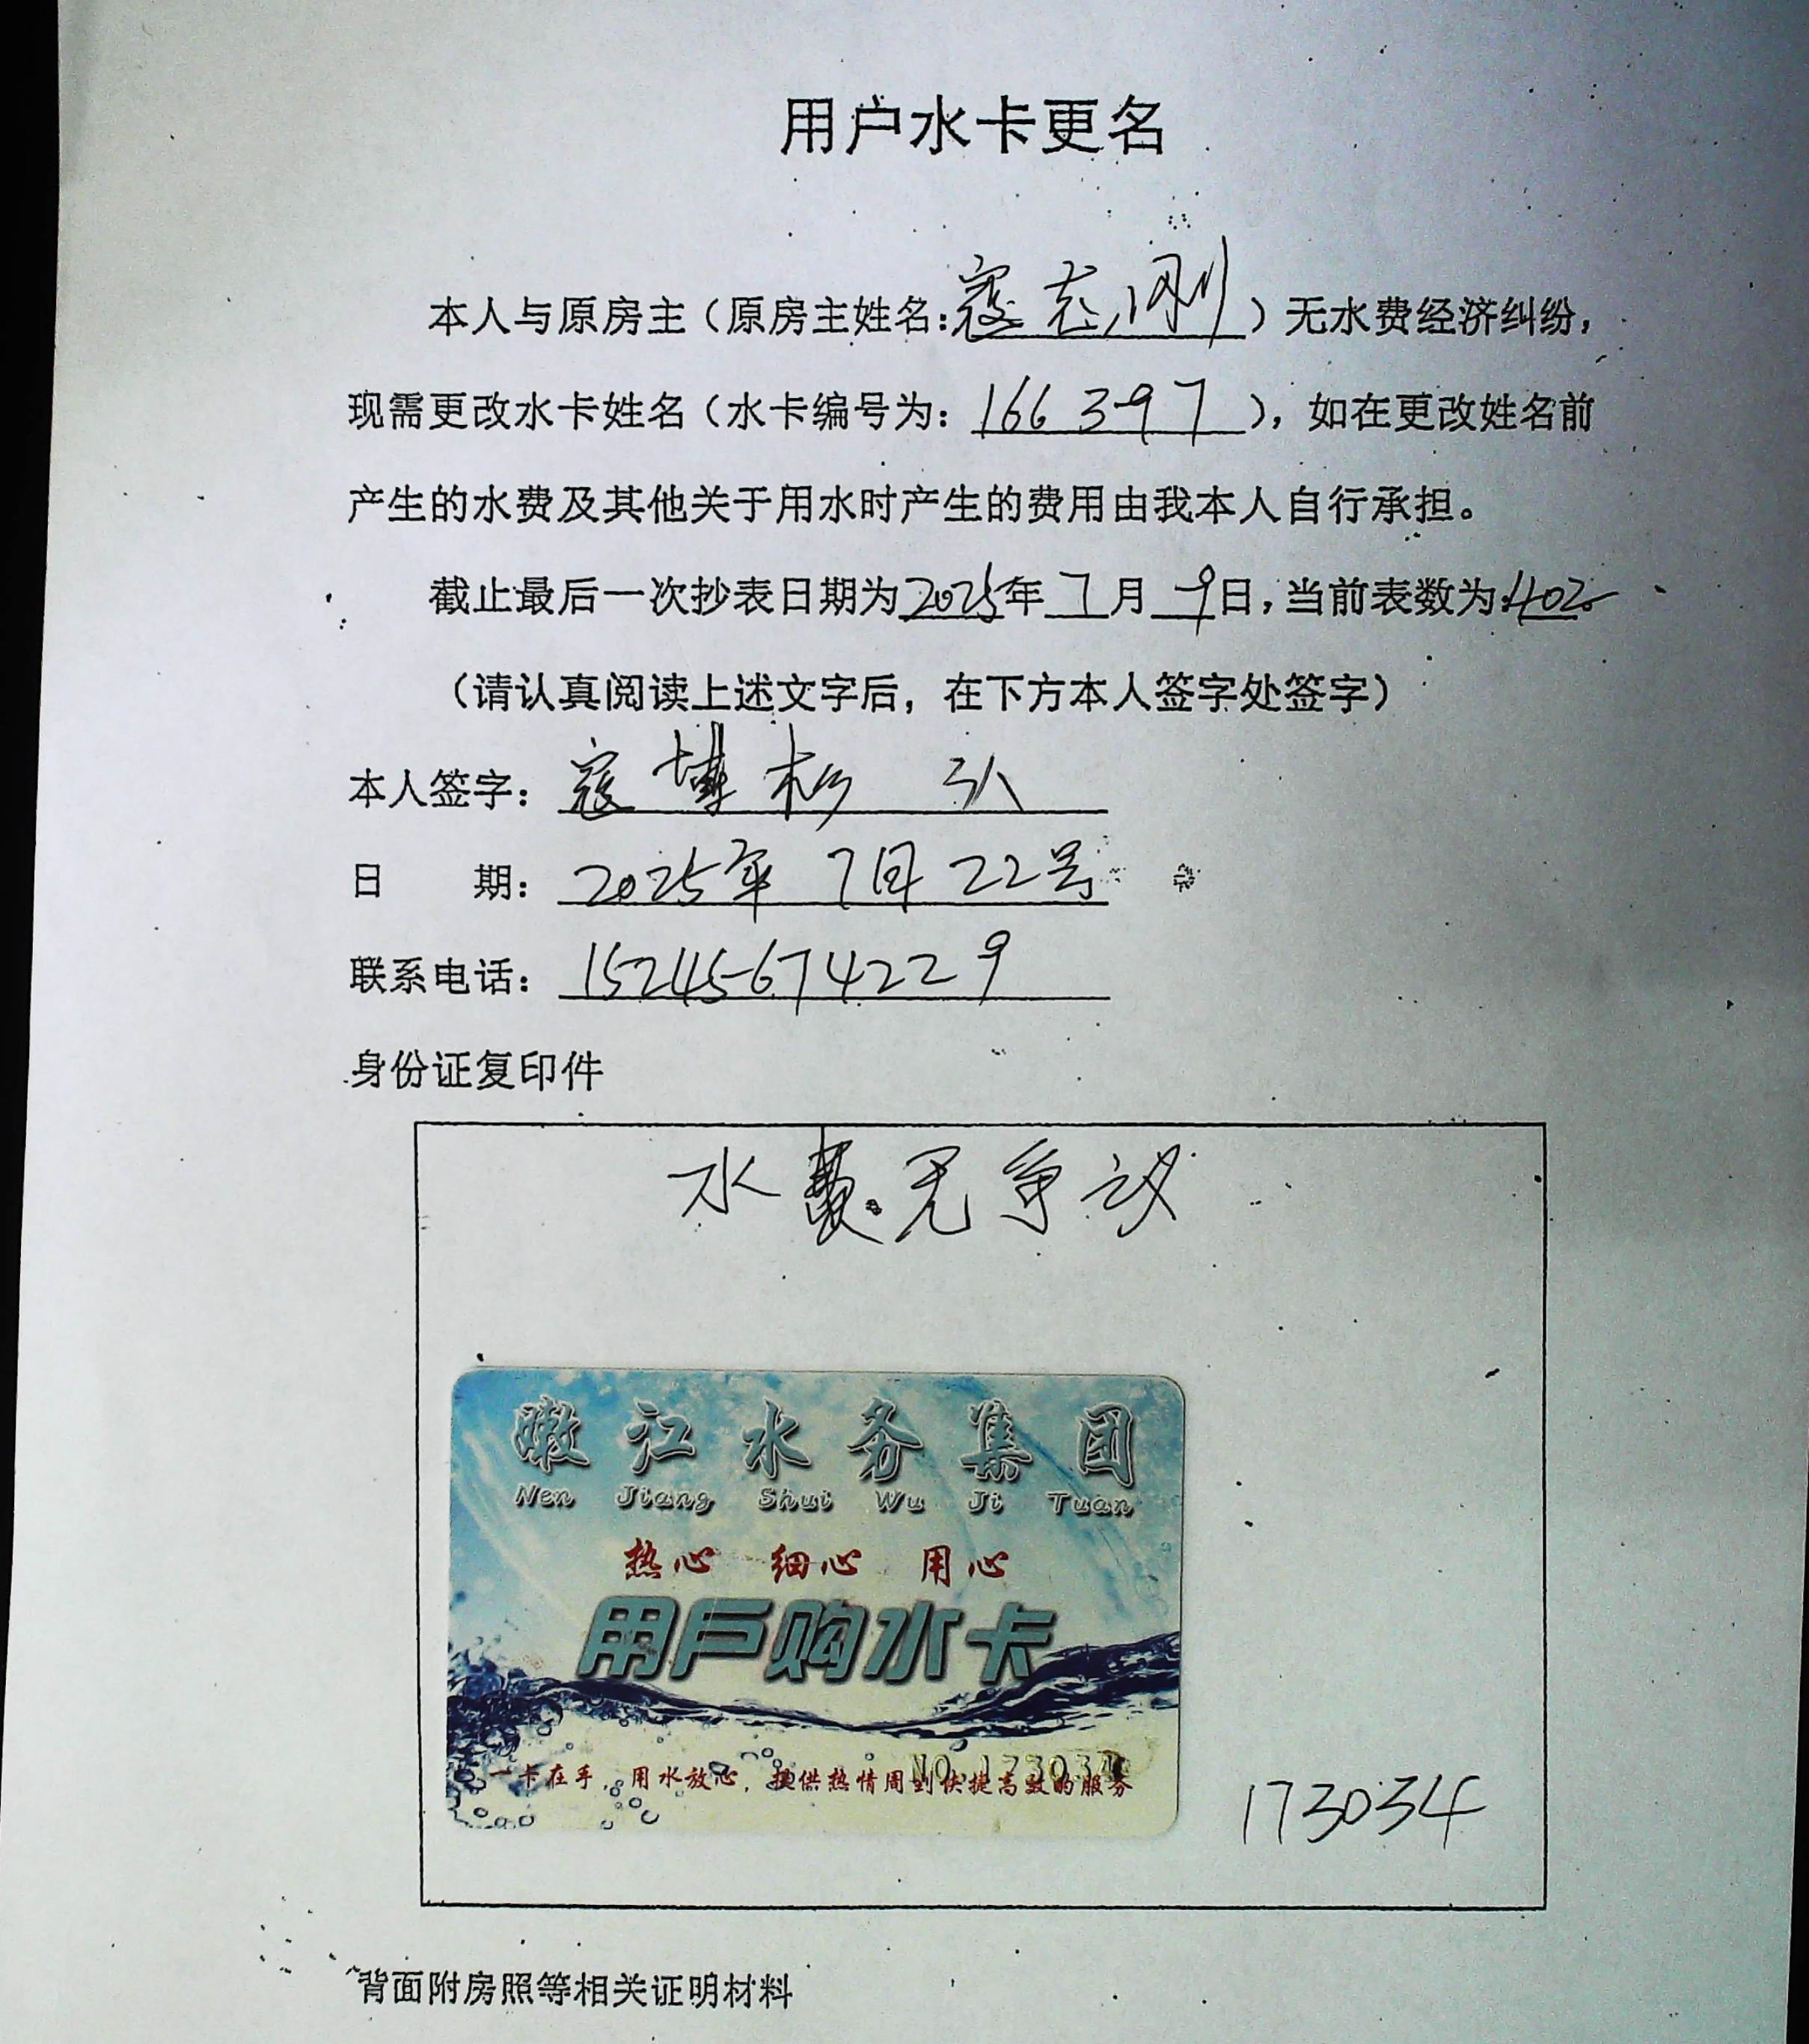 用户水卡更名
本人与原房主（原房主姓名:寇志刚）无水费经济纠纷，
现需更改水卡姓名（水卡编号为：166397），如在更改姓名前
产生的水费及其他关于用水时产生的费用由我本人自行承担。
截止最后一次抄表日期为2025年7月9日，当前表数为:402
（请认真阅读上述文字后，在下方本人签字处签字）
本人签字：寇博松
日 期：2025年7月22号
联系电话：15245674229
身份证复印件
水费无争议
嫩江水务集团
Nen Jiang Shui Wu Ji Tuan
热心 细心 用心
用户购水卡
NO.173034
一卡在手，用水放心，提供热情周到快捷高效的服务
173034
背面附房照等相关证明材料